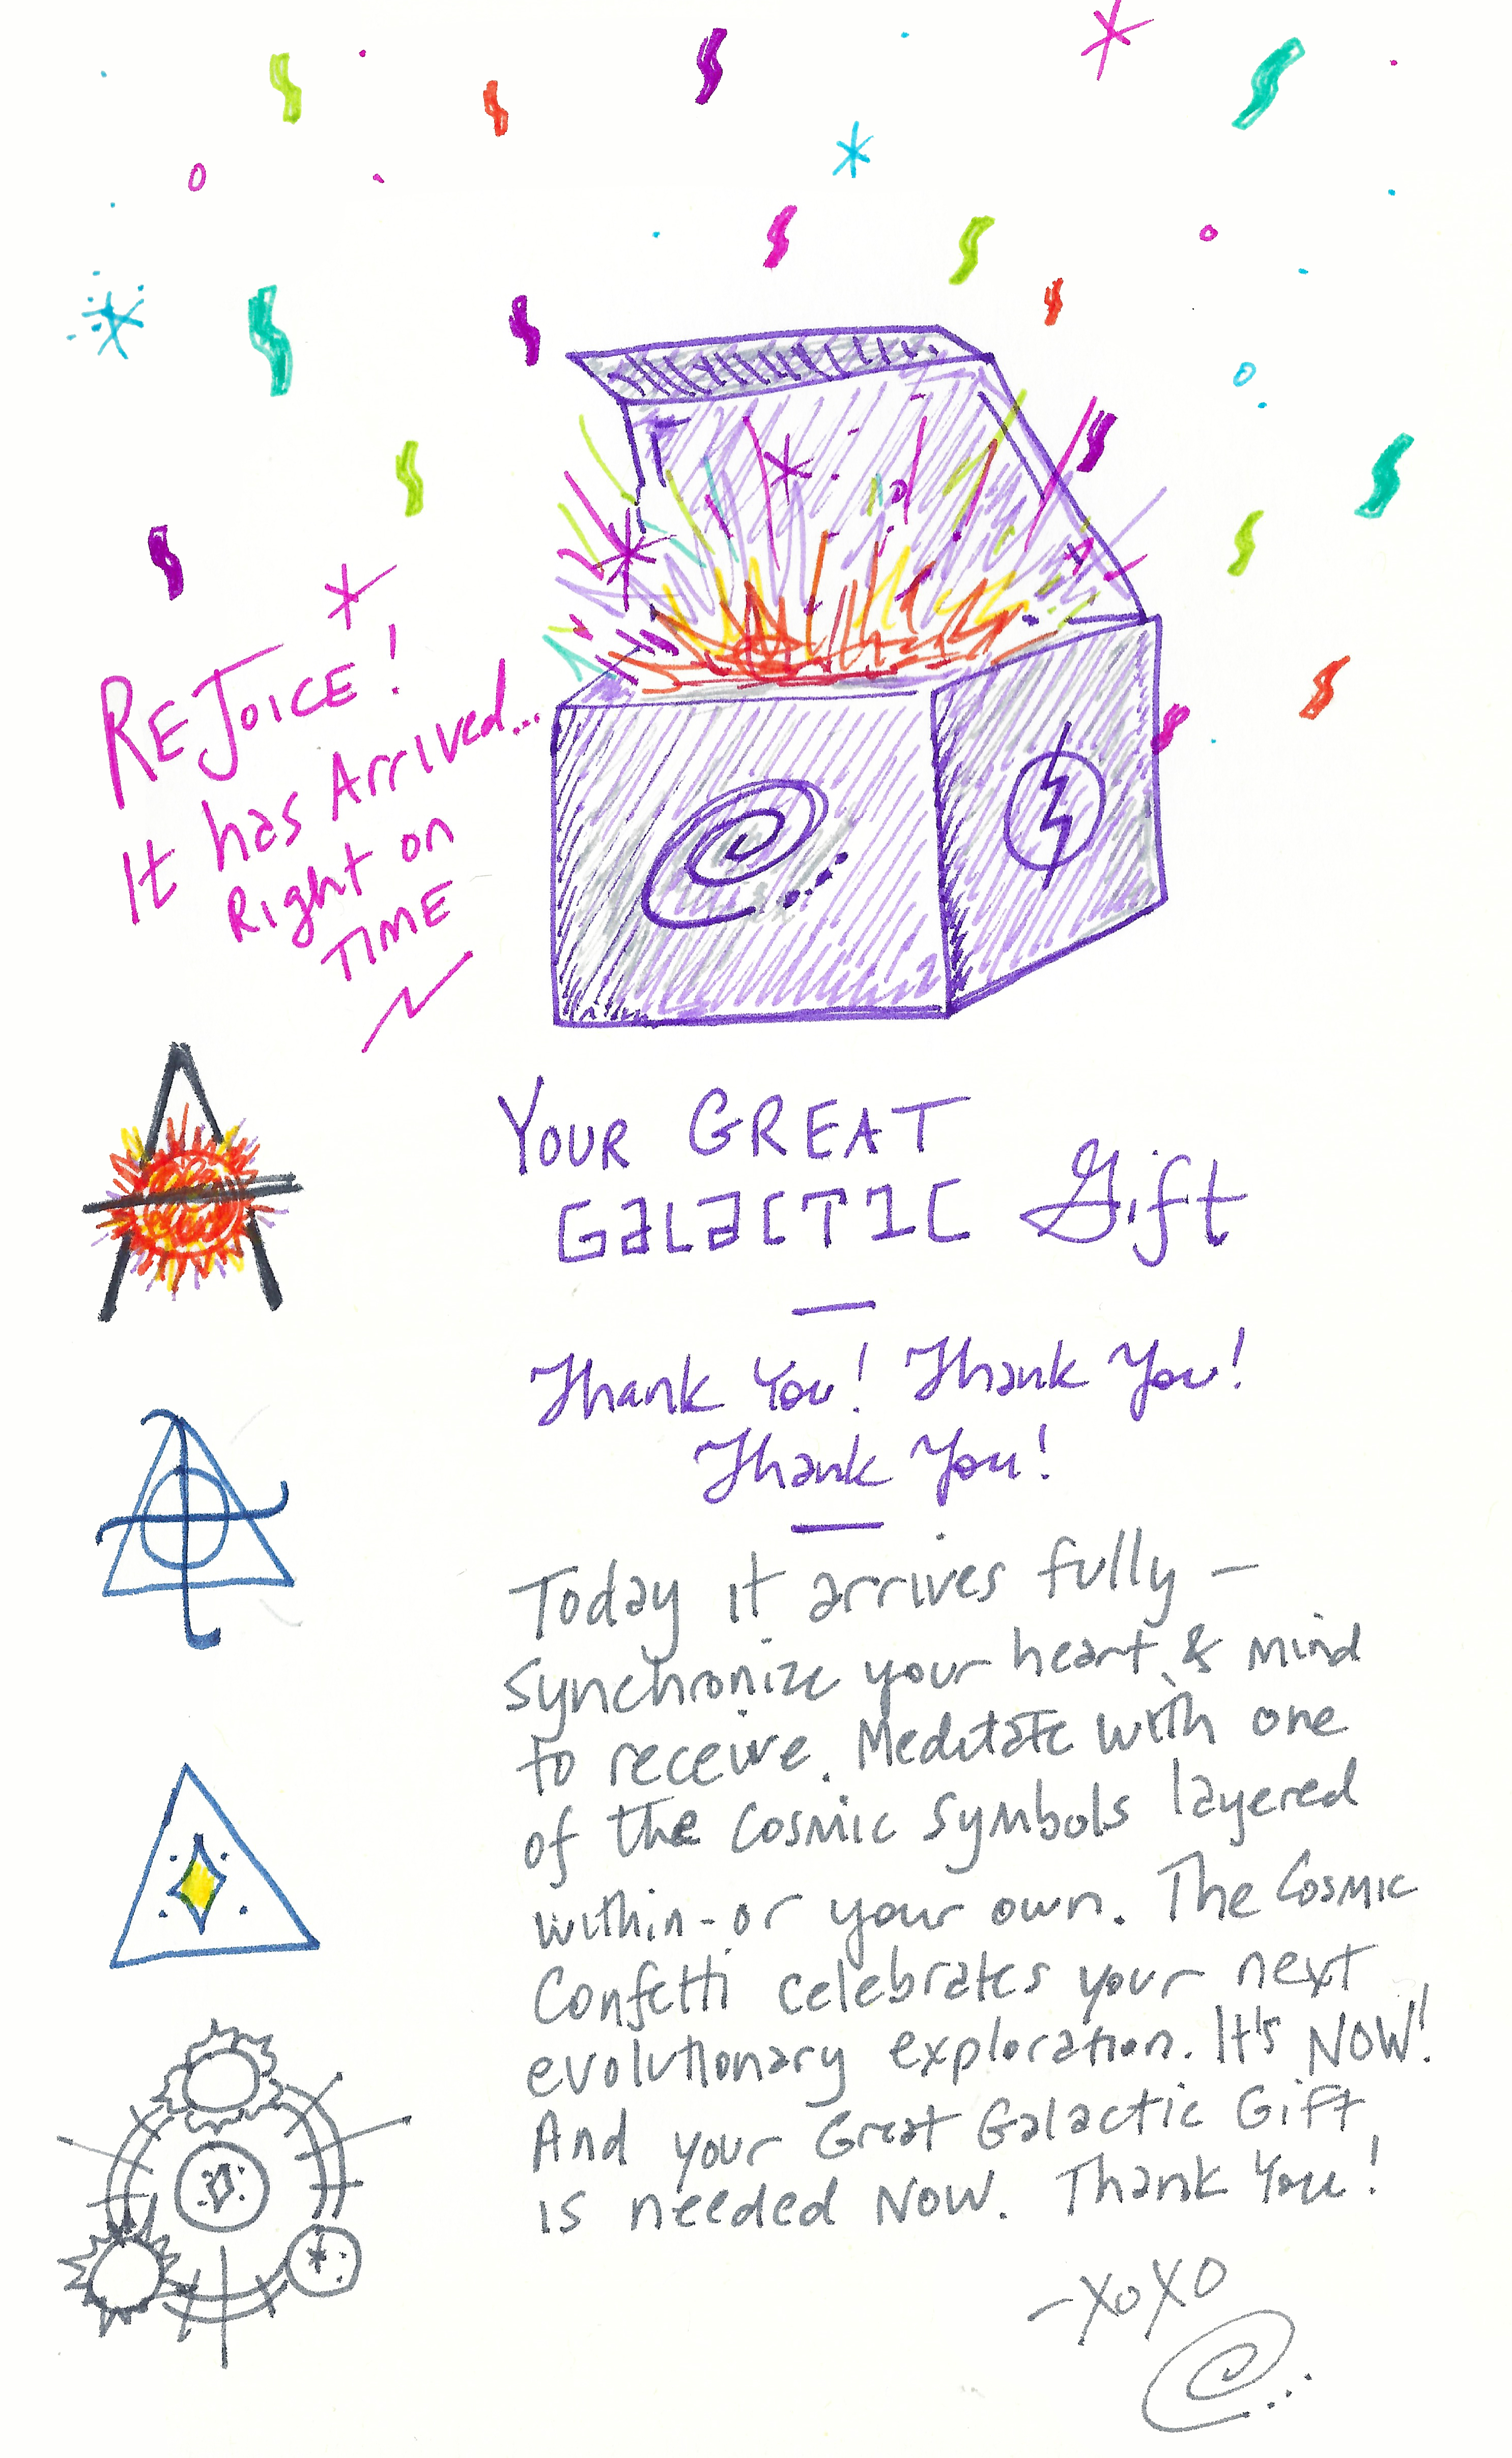 REJOICE!
It has Arrived...
Right on
TIME
YOUR GREAT
GALACTIC Gift
Thank You! Thank You!
Thank You!
Today it arrives fully –
synchronize your heart & mind
to receive. Meditate with one
of the Cosmic Symbols layered
within - or your own. The Cosmic
Confetti celebrates your next
evolutionary exploration. It's NOW!
And your Great Galactic Gift
is needed NOW. Thank You!
- XOXO